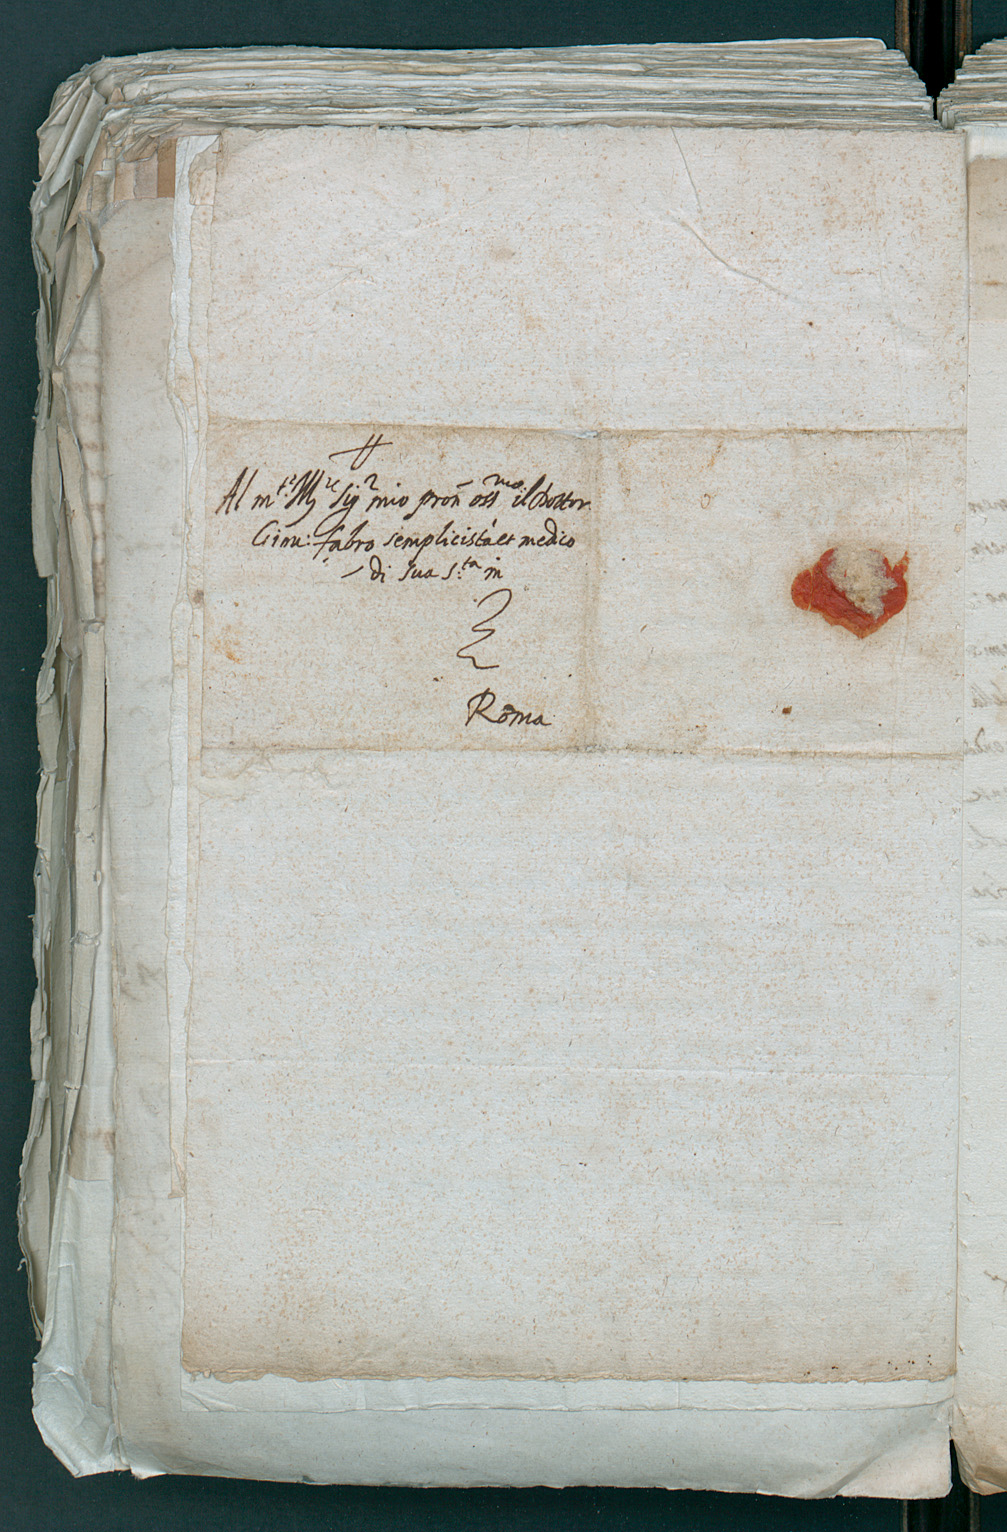 Al m.to Ill.re Sig.r mio pron oss.mo il Dottor
Giou: fabro semplicista et medico
di sua S.ta in
Roma